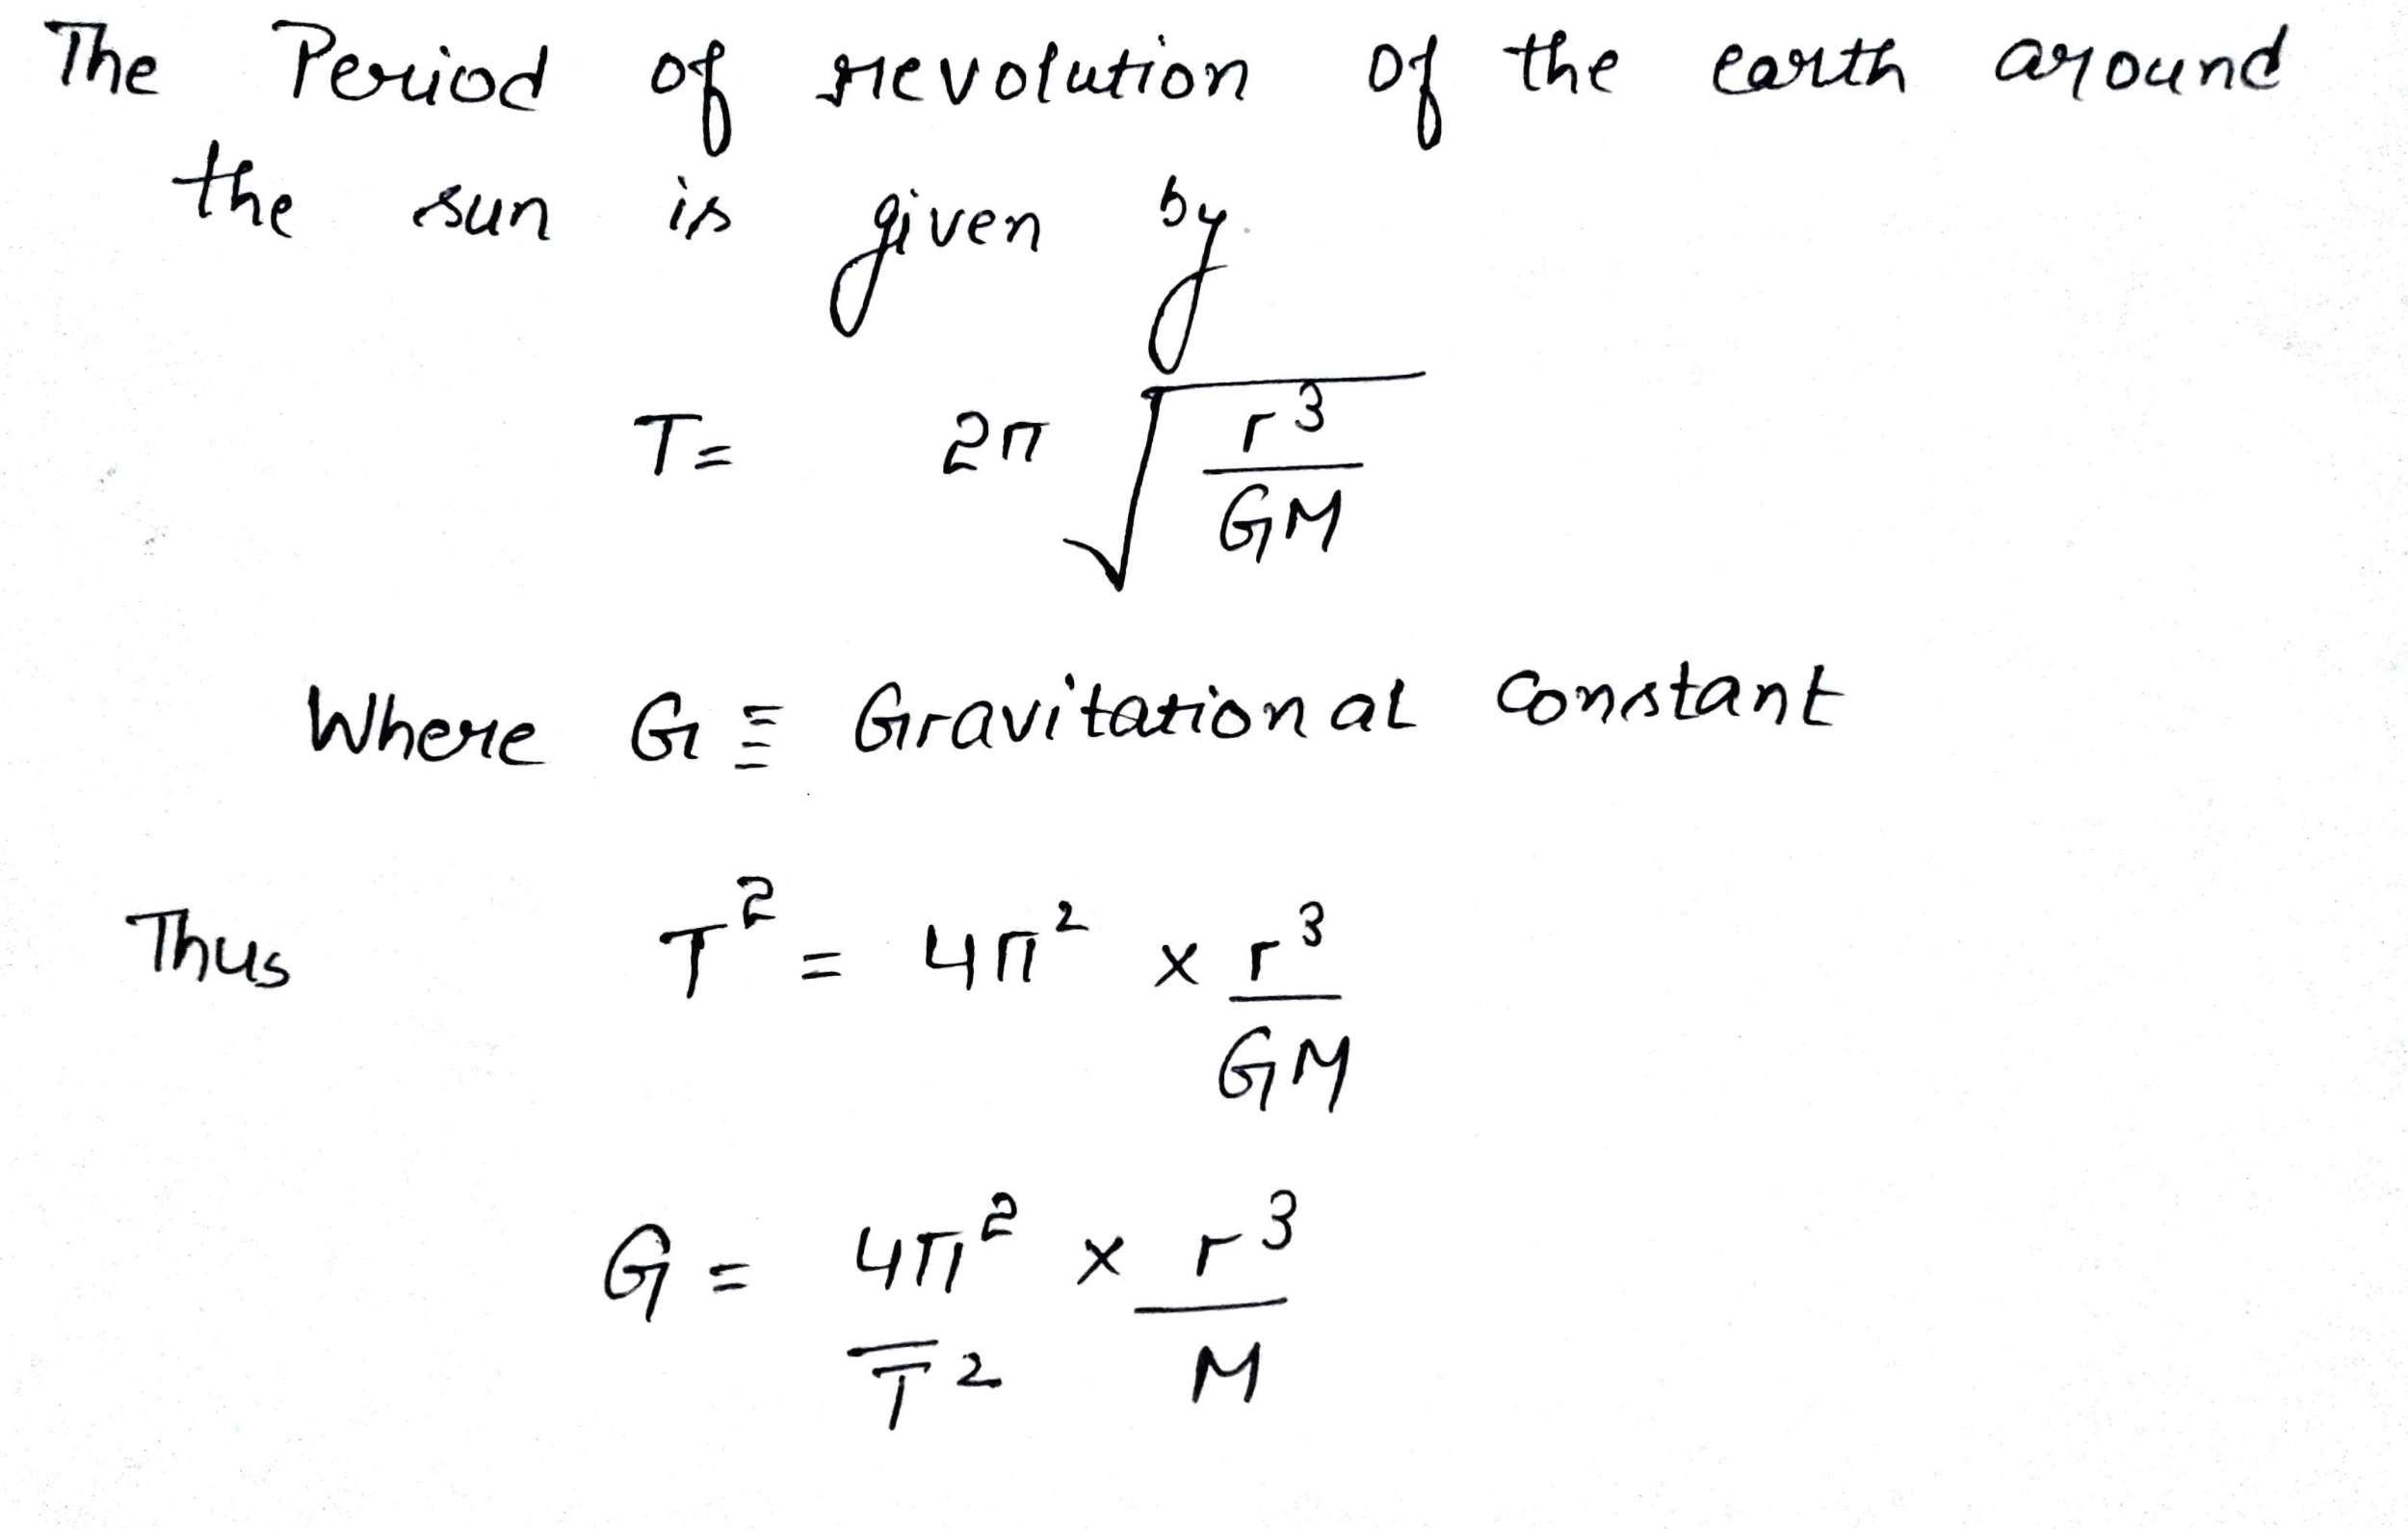 The Period of revolution of the earth around
the sun is given by
T = 2π √(r³/GM)
Where G ≡ Gravitational Constant
Thus T² = 4π² × r³/GM
G = 4π²/T² × r³/M